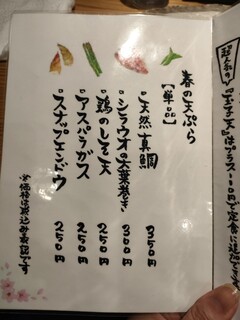 春の天ぷら
【単品】
・天然真鯛 350円
・シラウオの大葉巻き 300円
・鶏のしそ天 250円
・アスパラガス 250円
・スナップエンドウ 250円
※価格は税込み表記です
超人気の
『玉子天』はプラス110円で定食に追加できます